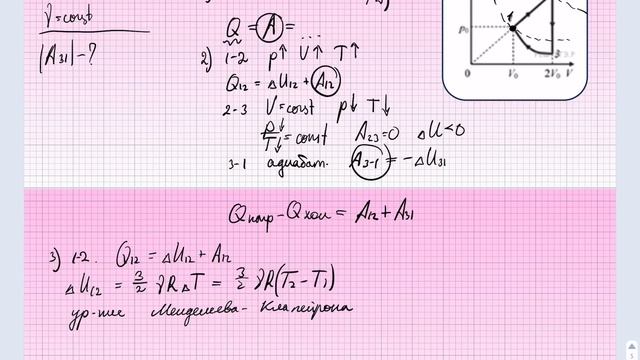 ν = const
|A₃₁| - ?
Q = A = ...
2) 1-2 p↑ V↑ T↑
Q₁₂ = ΔU₁₂ + A₁₂
2-3 V = const p↓ T↓
p↓/T↓ = const A₂₃ = 0 ΔU < 0
3-1 адиабат. A₃₋₁ = -ΔU₃₁
p₀
1
0 V₀ 2V₀ V
Qнагр - Qхол = A₁₂ + A₃₁
3) 1-2. Q₁₂ = ΔU₁₂ + A₁₂
ΔU₁₂ = 3/2 νRΔT = 3/2 νR(T₂ - T₁)
ур-ние Менделеева - Клапейрона